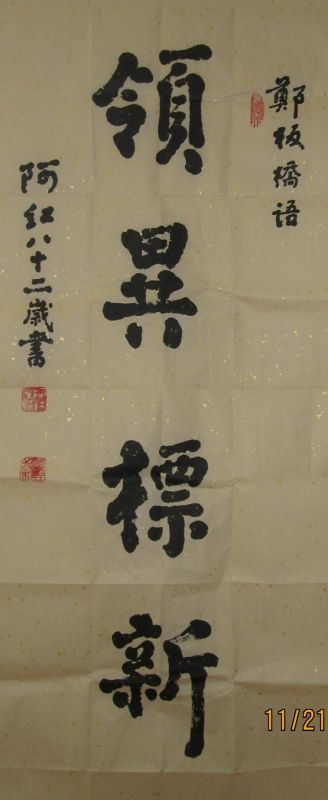 鄭板橋语
領異標新
阿红八十二歲書
11/21